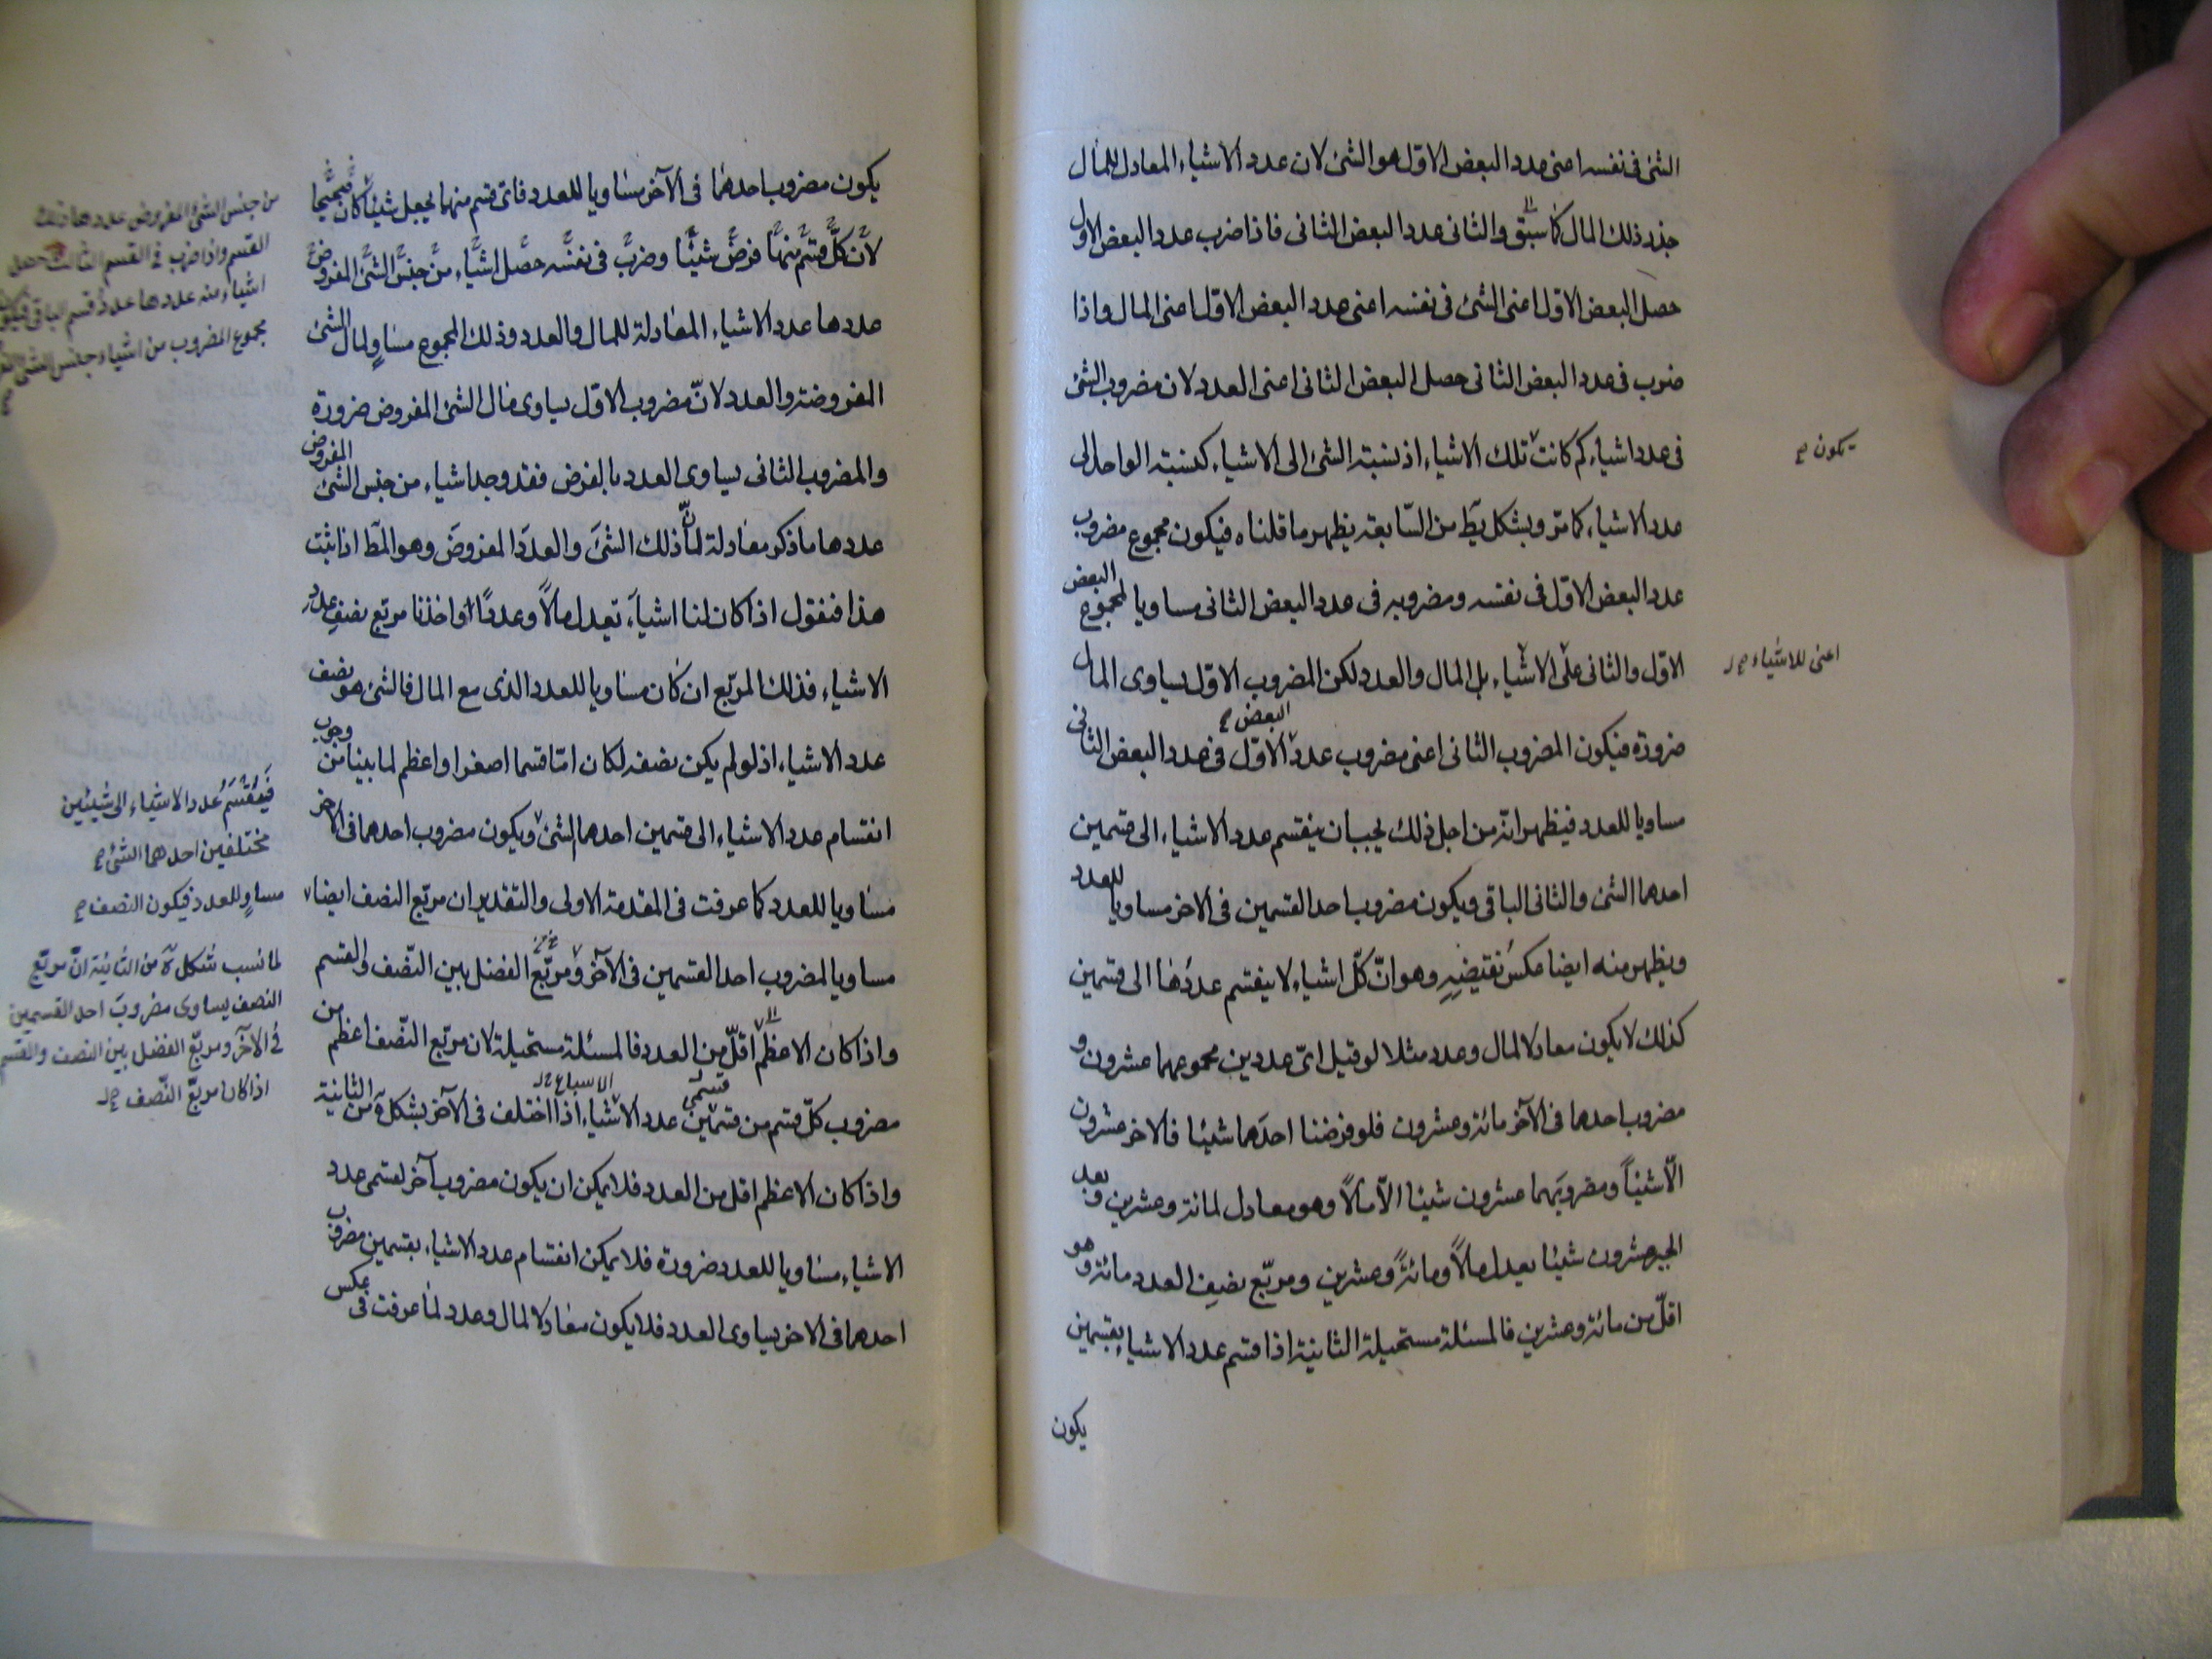 الشئ فى نفسه اعنى عدد البعض الاول هو الشئ لان عدد الاشياء المعادل للمال
جذر ذلك المال كما سبق والثانى عدد البعض الثانى فاذا ضرب عدد البعض الاول
حصل البعض الاول اعنى الشئ فى نفسه اعنى عدد البعض الاول اعنى المال واذا
ضرب فى عدد البعض الثانى حصل البعض الثانى اعنى العدد لان مضروب الشئ
فى عدد اشياء كم كانت تلك الاشياء اذ نسبة الشئ الى الاشياء كنسبة الواحد الى
يكون صح
عدد الاشياء كما مرّ وبشكل يَط من السّابعة يظهر ما قلناه فيكون مجموع مضروب
عدد البعض الاوّل فى نفسه ومضروبه فى عدد البعض الثانى مساويا لمجموع البعض
الاول والثانى على الاشياء بل المال والعدد لكن المضروب الاول يساوى المال
اعنى للاشياء صح
ضرورة فيكون المضروب الثانى اعنى مضروب عدد الاوّل فى عدد البعض الثانى
البعض صح
مساويا للعدد فيظهر انّه من اجل ذلك يجب ان ينقسم عدد الاشياء الى قسمين
احدهما الشئ والثانى الباقى ويكون مضروب احد القسمين فى الاخر مساويا للعدد
ويظهر منه ايضا عكسُ نقيضيِهِ وهو انّ كلّ اشياء لا ينقسم عددُها الى قسمين
كذلك لا يكون معادلا لمال وعدد مثلا لو قيل اىّ عددين مجموعهما عشرون و
مضروب احدهما فى الآخر مائة وعشرون فلو فرضنا احدَهما شيئا فالاخر عشرون
الّا شيئاً ومضروبَهما عشرون شيئا الّا مالاً وهو معادل لمائة وعشرين وبعد
الجبر عشرون شيئا يعدل مالاً ومائةً وعشرين ومربّع نصفِ العدد مائة وهو
اقلّ من مائة وعشرين فالمسئلة مستحيلة الثانية اذا قسم عدد الاشياء بقسمين
يكون
يكون مضروب احدهما فى الآخر مساويا للعدد فاىّ قسم منهما يجعل شيئا كان صحيحا
لان كل قسم منهما فرض شيئا وضرب فى نفسه حصل اشياء من جنس الشئ المفروض
عددها عدد الاشياء المعادلة للمال والعدد وذلك المجموع مساوٍ لمال الشئ
المفروضة والعدد لانّ مضروب الاوّل يساوى مال الشئ المفروض ضرورة
والمضروب الثانى يساوى العدد بالفرض فقد وجد اشياء من جنس الشئ المفروض
عددها ما ذكر معادلة لمال ذلك الشئَ والعددَ المفروضَ وهو المط اذا ثبت
هذا فنقول اذا كان لنا اشياءَ تعدل مالاً وعددًا واخذنا مربّع نصفِ عدد
الاشياء فذلك المربّع ان كان مساويا للعدد الذى مع المال فالشئ هو نصف
عدد الاشياء اذ لو لم يكن نصفه لكان امّا قسما اصغر او اعظم لما بينا من وجوب
انقسام عدد الاشياء الى قسمين احدهما الشئ ويكون مضروب احدهما فى الاخر
مساويا للعدد كما عرفت فى المقدمة الاولى والتقدير ان مربّع النصف ايضا
مساويا لمضروب احد القسمين فى الآخر ومربّع الفضل بين النصّف والقسم
واذا كان الاعظم اقلّ من العدد فالمسئلة مستحيلة لان مربّع النصّف اعظم من
مضروب كلّ قسم من قسمين عدد الاشياء اذا اختلف فى الآخر بشكل ة من الثانية
واذا كان الاعظم اقل من العدد فلا يمكن ان يكون مضروب آخر لقسمى عدد
الاشياء مساويا للعدد ضرورة فلا يمكن انقسام عدد الاشياء بقسمين مضروب
احدهما فى الاخر يساوى العدد فلا يكون معادلا لمال وعدد لما عرفت فى عكس
من جنس الشئ المفروض عددها ذلك
القسم واذا ضرب فى القسم الثالث حصل
اشياء منه عددها عدد قسم الباقى فيكون
مجموع المضروب من اشياء جنس الشئ
فَيَنقسَمُ عدد الاشياء الى شيئين
مختلفين احدهما الشئ صح
مساوٍ للعدد فيكون النصف صح
لما نسب شكل ة من الثانية انّ مربّع
النصف يساوى مضروبَ احد القسمين
فى الآخر ومربّع الفضل بين النصف والقسم
اذا كان مربّع النّصف صح